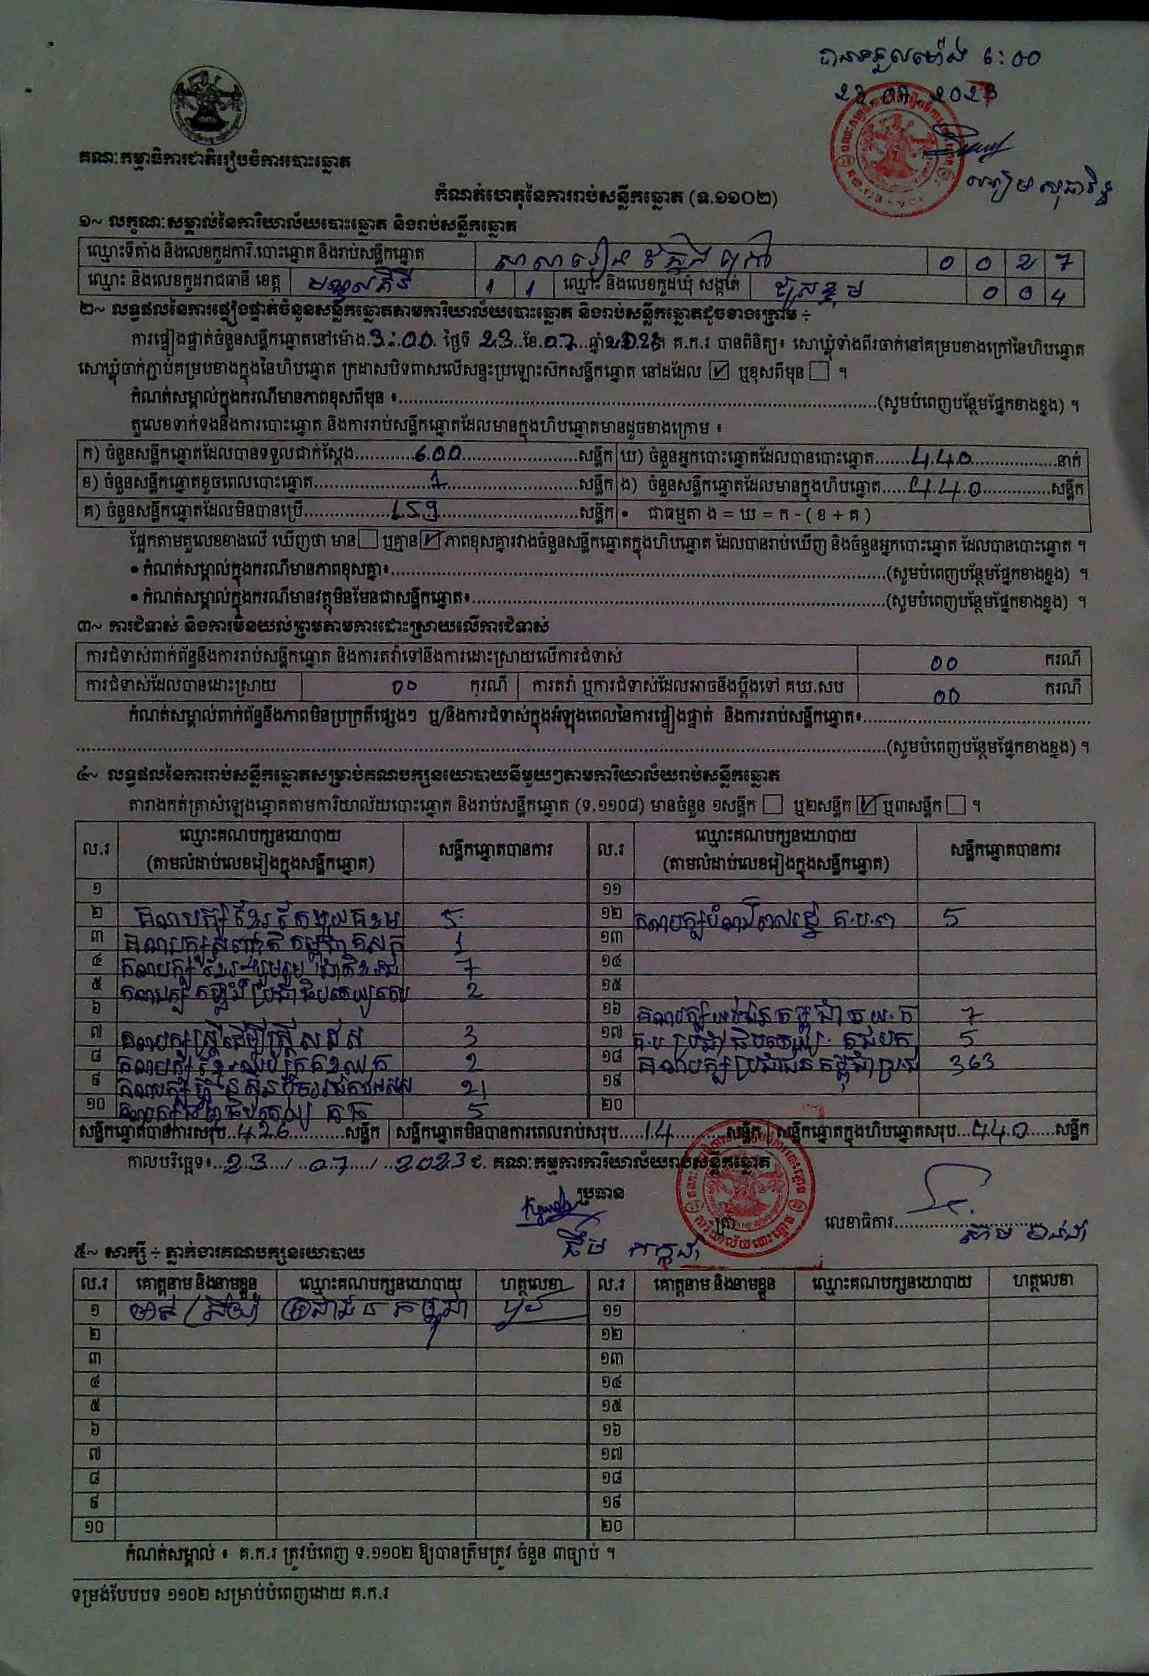 បានទទួលម៉ោង 6:00
23 07 2023
គណៈកម្មាធិការជាតិរៀបចំការបោះឆ្នោត
កំណត់ហេតុនៃការរាប់សន្លឹកឆ្នោត (ទ.១១០២)
១~ លក្ខណៈសម្គាល់នៃការិយាល័យបោះឆ្នោត និងរាប់សន្លឹកឆ្នោត
ឈ្មោះទីតាំង និងលេខកូដការិ.បោះឆ្នោត និងរាប់សន្លឹកឆ្នោត សាលារៀន 0 0 2 7
ឈ្មោះ និងលេខកូដរាជធានី ខេត្ត មណ្ឌលគិរី 1 1 ឈ្មោះ និងលេខកូដឃុំ សង្កាត់ 0 0 4
២~ លទ្ធផលនៃការផ្ទៀងផ្ទាត់ចំនួនសន្លឹកឆ្នោតតាមការិយាល័យបោះឆ្នោត និងរាប់សន្លឹកឆ្នោតដូចខាងក្រោម ÷
ការផ្ទៀងផ្ទាត់ចំនួនសន្លឹកឆ្នោតនៅម៉ោង 3:00 ថ្ងៃទី 23 ខែ 07 ឆ្នាំ 2023 គ.ក.រ បានពិនិត្យ៖ សោឃ្លុំទាំងពីរចាក់នៅគម្របខាងក្រៅនៃហិបឆ្នោត
សោឃ្លុំចាក់ភ្ជាប់គម្របខាងក្នុងនៃហិបឆ្នោត ក្រដាសបិទពាសលើសន្ទះប្រឡោះស៊កសន្លឹកឆ្នោត នៅដដែល ☑ ឬខុសពីមុន ☐ ។
កំណត់សម្គាល់ក្នុងករណីមានភាពខុសពីមុន ៖ (សូមបំពេញបន្ថែមផ្នែកខាងខ្នង) ។
តួលេខទាក់ទងនឹងការបោះឆ្នោត និងការរាប់សន្លឹកឆ្នោតដែលមានក្នុងហិបឆ្នោតមានដូចខាងក្រោម ៖
ក) ចំនួនសន្លឹកឆ្នោតដែលបានទទួលជាក់ស្តែង 600 សន្លឹក ឃ) ចំនួនអ្នកបោះឆ្នោតដែលបានបោះឆ្នោត 440 នាក់
ខ) ចំនួនសន្លឹកឆ្នោតខូចពេលបោះឆ្នោត 1 សន្លឹក ង) ចំនួនសន្លឹកឆ្នោតដែលមានក្នុងហិបឆ្នោត 440 សន្លឹក
គ) ចំនួនសន្លឹកឆ្នោតដែលមិនបានប្រើ 159 សន្លឹក • ជាធម្មតា ង = ឃ = ក - ( ខ + គ )
ផ្អែកតាមតួលេខខាងលើ ឃើញថា មាន ☐ ឬគ្មាន ☑ ភាពខុសគ្នារវាងចំនួនសន្លឹកឆ្នោតក្នុងហិបឆ្នោត ដែលបានរាប់ឃើញ និងចំនួនអ្នកបោះឆ្នោត ដែលបានបោះឆ្នោត ។
• កំណត់សម្គាល់ក្នុងករណីមានភាពខុសគ្នា៖ (សូមបំពេញបន្ថែមផ្នែកខាងខ្នង) ។
• កំណត់សម្គាល់ក្នុងករណីមានវត្ថុមិនមែនជាសន្លឹកឆ្នោត៖ (សូមបំពេញបន្ថែមផ្នែកខាងខ្នង) ។
៣~ ការជំទាស់ និងការមិនយល់ព្រមតាមការដោះស្រាយលើការជំទាស់
ការជំទាស់ពាក់ព័ន្ធនឹងការរាប់សន្លឹកឆ្នោត និងការតវ៉ាទៅនឹងការដោះស្រាយលើការជំទាស់ 00 ករណី
ការជំទាស់ដែលបានដោះស្រាយ 00 ករណី ការតវ៉ា ឬការជំទាស់ដែលអាចនឹងប្តឹងទៅ គឃ.សប 00 ករណី
កំណត់សម្គាល់ពាក់ព័ន្ធនឹងភាពមិនប្រក្រតីផ្សេងៗ ឬ/និងការជំទាស់ក្នុងអំឡុងពេលនៃការផ្ទៀងផ្ទាត់ និងការរាប់សន្លឹកឆ្នោត៖
(សូមបំពេញបន្ថែមផ្នែកខាងខ្នង) ។
៤~ លទ្ធផលនៃការរាប់សន្លឹកឆ្នោតសម្រាប់គណបក្សនយោបាយនីមួយៗតាមការិយាល័យរាប់សន្លឹកឆ្នោត
តារាងកត់ត្រាសំឡេងឆ្នោតតាមការិយាល័យបោះឆ្នោត និងរាប់សន្លឹកឆ្នោត (ទ.១១០៨) មានចំនួន ១សន្លឹក ☐ ឬ២សន្លឹក ☑ ឬ៣សន្លឹក ☐ ។
ល.រ ឈ្មោះគណបក្សនយោបាយ (តាមលំដាប់លេខរៀងក្នុងសន្លឹកឆ្នោត) សន្លឹកឆ្នោតបានការ ល.រ ឈ្មោះគណបក្សនយោបាយ (តាមលំដាប់លេខរៀងក្នុងសន្លឹកឆ្នោត) សន្លឹកឆ្នោតបានការ
១ ១១
២ គណបក្ស ខ្មែរតែមួយ គខម 5 ១២ គណបក្ស 5
៣ គណបក្ស សញ្ជាតិកម្ពុជា គសក 1 ១៣
៤ គណបក្ស ខ្មែររួបរួមជាតិ 7 ១៤
៥ គណបក្ស 2 ១៥
៦ ១៦ គណបក្ស យុវជនកម្ពុជា គ.យ.ក 7
៧ គណបក្ស ស្ត្រីដើម្បីស្ត្រី 3 ១៧ 5
៨ គណបក្ស 2 ១៨ គណបក្ស ប្រជាជនកម្ពុជា 363
៩ គណបក្ស ហ្វ៊ុនស៊ិនប៉ិច 21 ១៩
១០ គណបក្ស 5 ២០
សន្លឹកឆ្នោតបានការសរុប 426 សន្លឹក សន្លឹកឆ្នោតមិនបានការពេលរាប់សរុប 14 សន្លឹក សន្លឹកឆ្នោតក្នុងហិបឆ្នោតសរុប 440 សន្លឹក
កាលបរិច្ឆេទ៖ 23 / 07 / 2023 ជ. គណៈកម្មការការិយាល័យរាប់សន្លឹកឆ្នោត
ប្រធាន ត្រា លេខាធិការ
៥~ សាក្សី ÷ ភ្នាក់ងារគណបក្សនយោបាយ
ល.រ គោត្តនាម និងនាមខ្លួន ឈ្មោះគណបក្សនយោបាយ ហត្ថលេខា ល.រ គោត្តនាម និងនាមខ្លួន ឈ្មោះគណបក្សនយោបាយ ហត្ថលេខា
១ ប្រជាជនកម្ពុជា ១១
២ ១២
៣ ១៣
៤ ១៤
៥ ១៥
៦ ១៦
៧ ១៧
៨ ១៨
៩ ១៩
១០ ២០
កំណត់សម្គាល់ ៖ គ.ក.រ ត្រូវបំពេញ ទ.១១០២ ឱ្យបានត្រឹមត្រូវ ចំនួន ៣ច្បាប់ ។
ទម្រង់បែបបទ ១១០២ សម្រាប់បំពេញដោយ គ.ក.រ